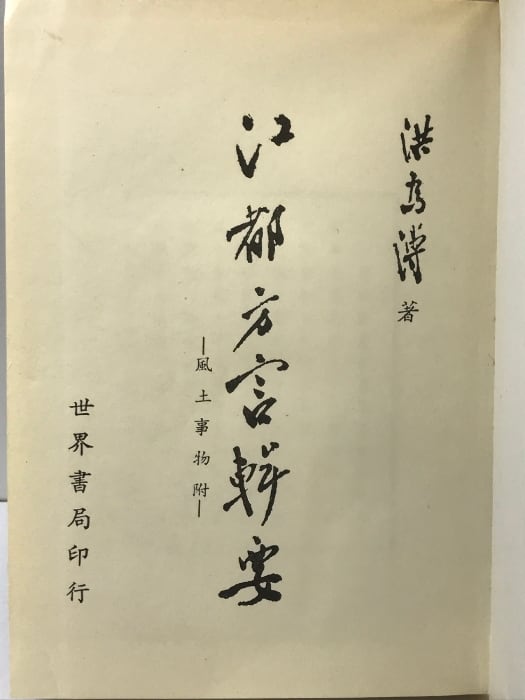 洪為溥 著
江都方言輯要
—風土事物附—
世界書局印行